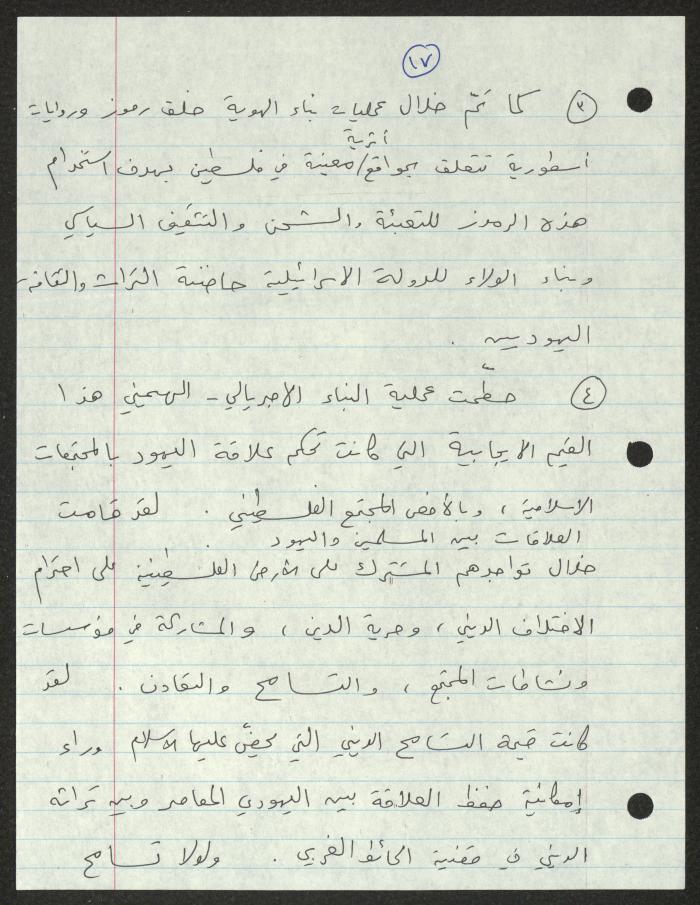 ١٧
٣ كما تمّ خلال عمليات بناء الهوية خلق رموز وروايات
أثرية
أسطورية تتعلق بمواقع/معينة في فلسطين بهدف استخدام
هذه الرموز للتعبئة والشحن والتثقيف السياسي
وبناء الولاء للدولة الاسرائيلية حاضنة التراث والثقافة
اليهوديين .
٤ حطّمت عملية البناء الامبريالي - الصهيوني هذا
القيم الايجابية التي كانت تحكم علاقة اليهود بالمجتمعات
الاسلامية ، وبالأخص المجتمع الفلسطيني . لقد قامت
العلاقات بين المسلمين واليهود
خلال تواجدهم المشترك على الأرض الفلسطينية على احترام
الاختلاف الديني ، وحرية الدين ، والمشاركة في مؤسسات
ونشاطات المجتمع ، والتسامح والتعاون . لقد
كانت قيمة التسامح الديني التي يحضّ عليها الاسلام وراء
إمكانية حفظ العلاقة بين اليهودي المعاصر وبين تراثه
الديني في قضية الحائط الغربي . ولولا تسامح